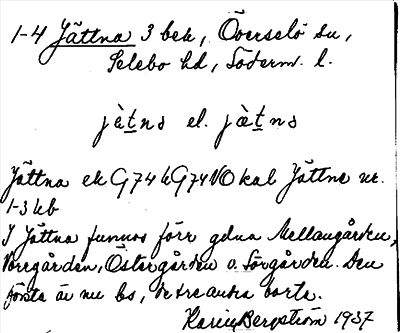 1-4 Jättna 3 hek, Överselö sn,
Selebo hd, Söderm. l.
jät̲ns el. jæt̲ns
Jättna ek G74 h G74 NO kal Jättna nr.
1-3 kb
I Jättna funnos förr gdna Mellangården,
Norrgården, Östergården o. Sörgården. Den
första är nu bs, de tre andra borta.
Karin Bergström 1937